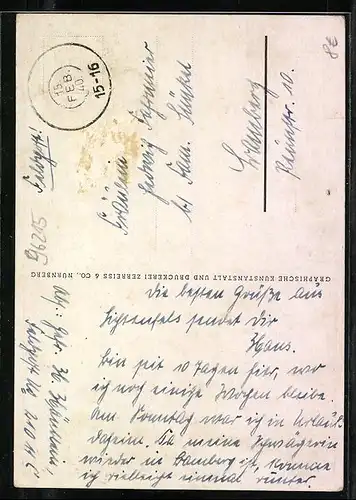 8E
15
FEB.
40
15-16
Feldpost.
Fräulein
Hedwig
b/ Fam.
Bamberg
10.
96215
GRAPHISCHE KUNSTANSTALT UND DRUCKEREI ZERREISS & CO., NÜRNBERG
Abs: Gefr. H.
Feldpost No
Die besten Grüße aus
Lichtenfels sendet Dir
Hans.
Bin seit 10 Tagen hier, wo
ich noch einige Wochen bleibe.
Am Sonntag war ich in Urlaub
daheim. Da meine Schwägerin
wieder in Bamberg ist, komme
ich vielleicht einmal runter.